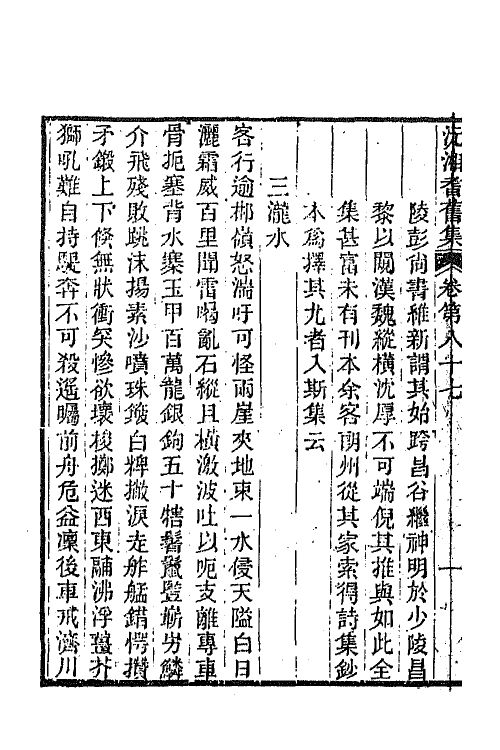 沅湘耆舊集 卷第八十七 一
陵彭尚書維新謂其始跨昌谷繼神明於少陵昌
黎以闖漢魏縱橫沈厚不可端倪其推與如此全
集甚富未有刊本余客朗州從其家索得詩集鈔
本爲擇其尤者入斯集云
三瀧水
客行逾郴嶺怒湍吁可怪兩崖夾地束一水侵天隘白日
灑霜威百里聞雷喝亂石縱且橫激波吐以呃支離專車
骨扼塞背水寨玉甲百萬龍銀鉤五十犗鬐鬣豎嶄岃鱗
介飛殘敗跳沫揚素沙噴珠鏹白粺撇淚走舴艋錯愕攢
矛鍛上下倏無狀衝突慘欲壞梭擲迷西東鬴沸浮薑芥
獅吼難自持駿奔不可殺遥矚前舟危益凜後車戒濟川